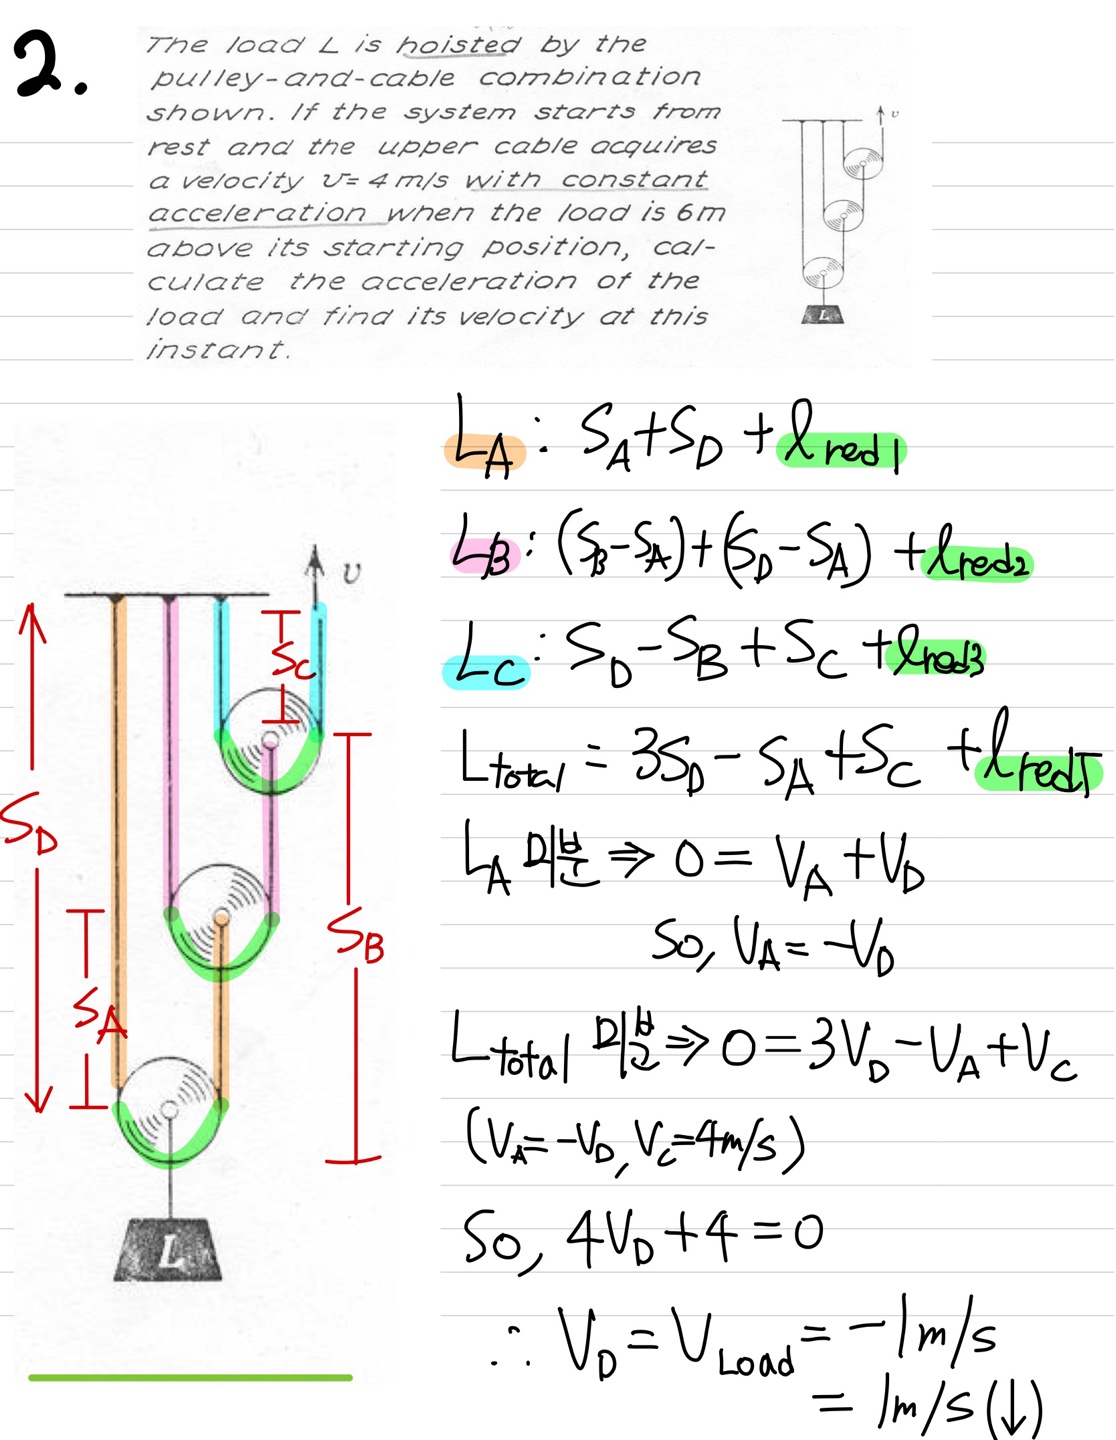 2.
The load L is hoisted by the
pulley-and-cable combination
shown. If the system starts from
rest and the upper cable acquires
a velocity v=4 m/s with constant
acceleration when the load is 6m
above its starting position, cal-
culate the acceleration of the
load and find its velocity at this
instant.
v
L
L_A : S_A+S_D+l_red1
L_B : (S_B-S_A)+(S_D-S_A)+l_red2
L_C : S_D-S_B+S_C+l_red3
L_total = 3S_D-S_A+S_C+l_redT
L_A 미분 ⇒ 0=V_A+V_D
So, V_A=-V_D
L_total 미분 ⇒ 0=3V_D-V_A+V_C
(V_A=-V_D, V_C=4m/s)
So, 4V_D+4=0
∴ V_D=V_Load=-1m/s
=1m/s(↓)
v
S_C
S_D
S_B
S_A
L